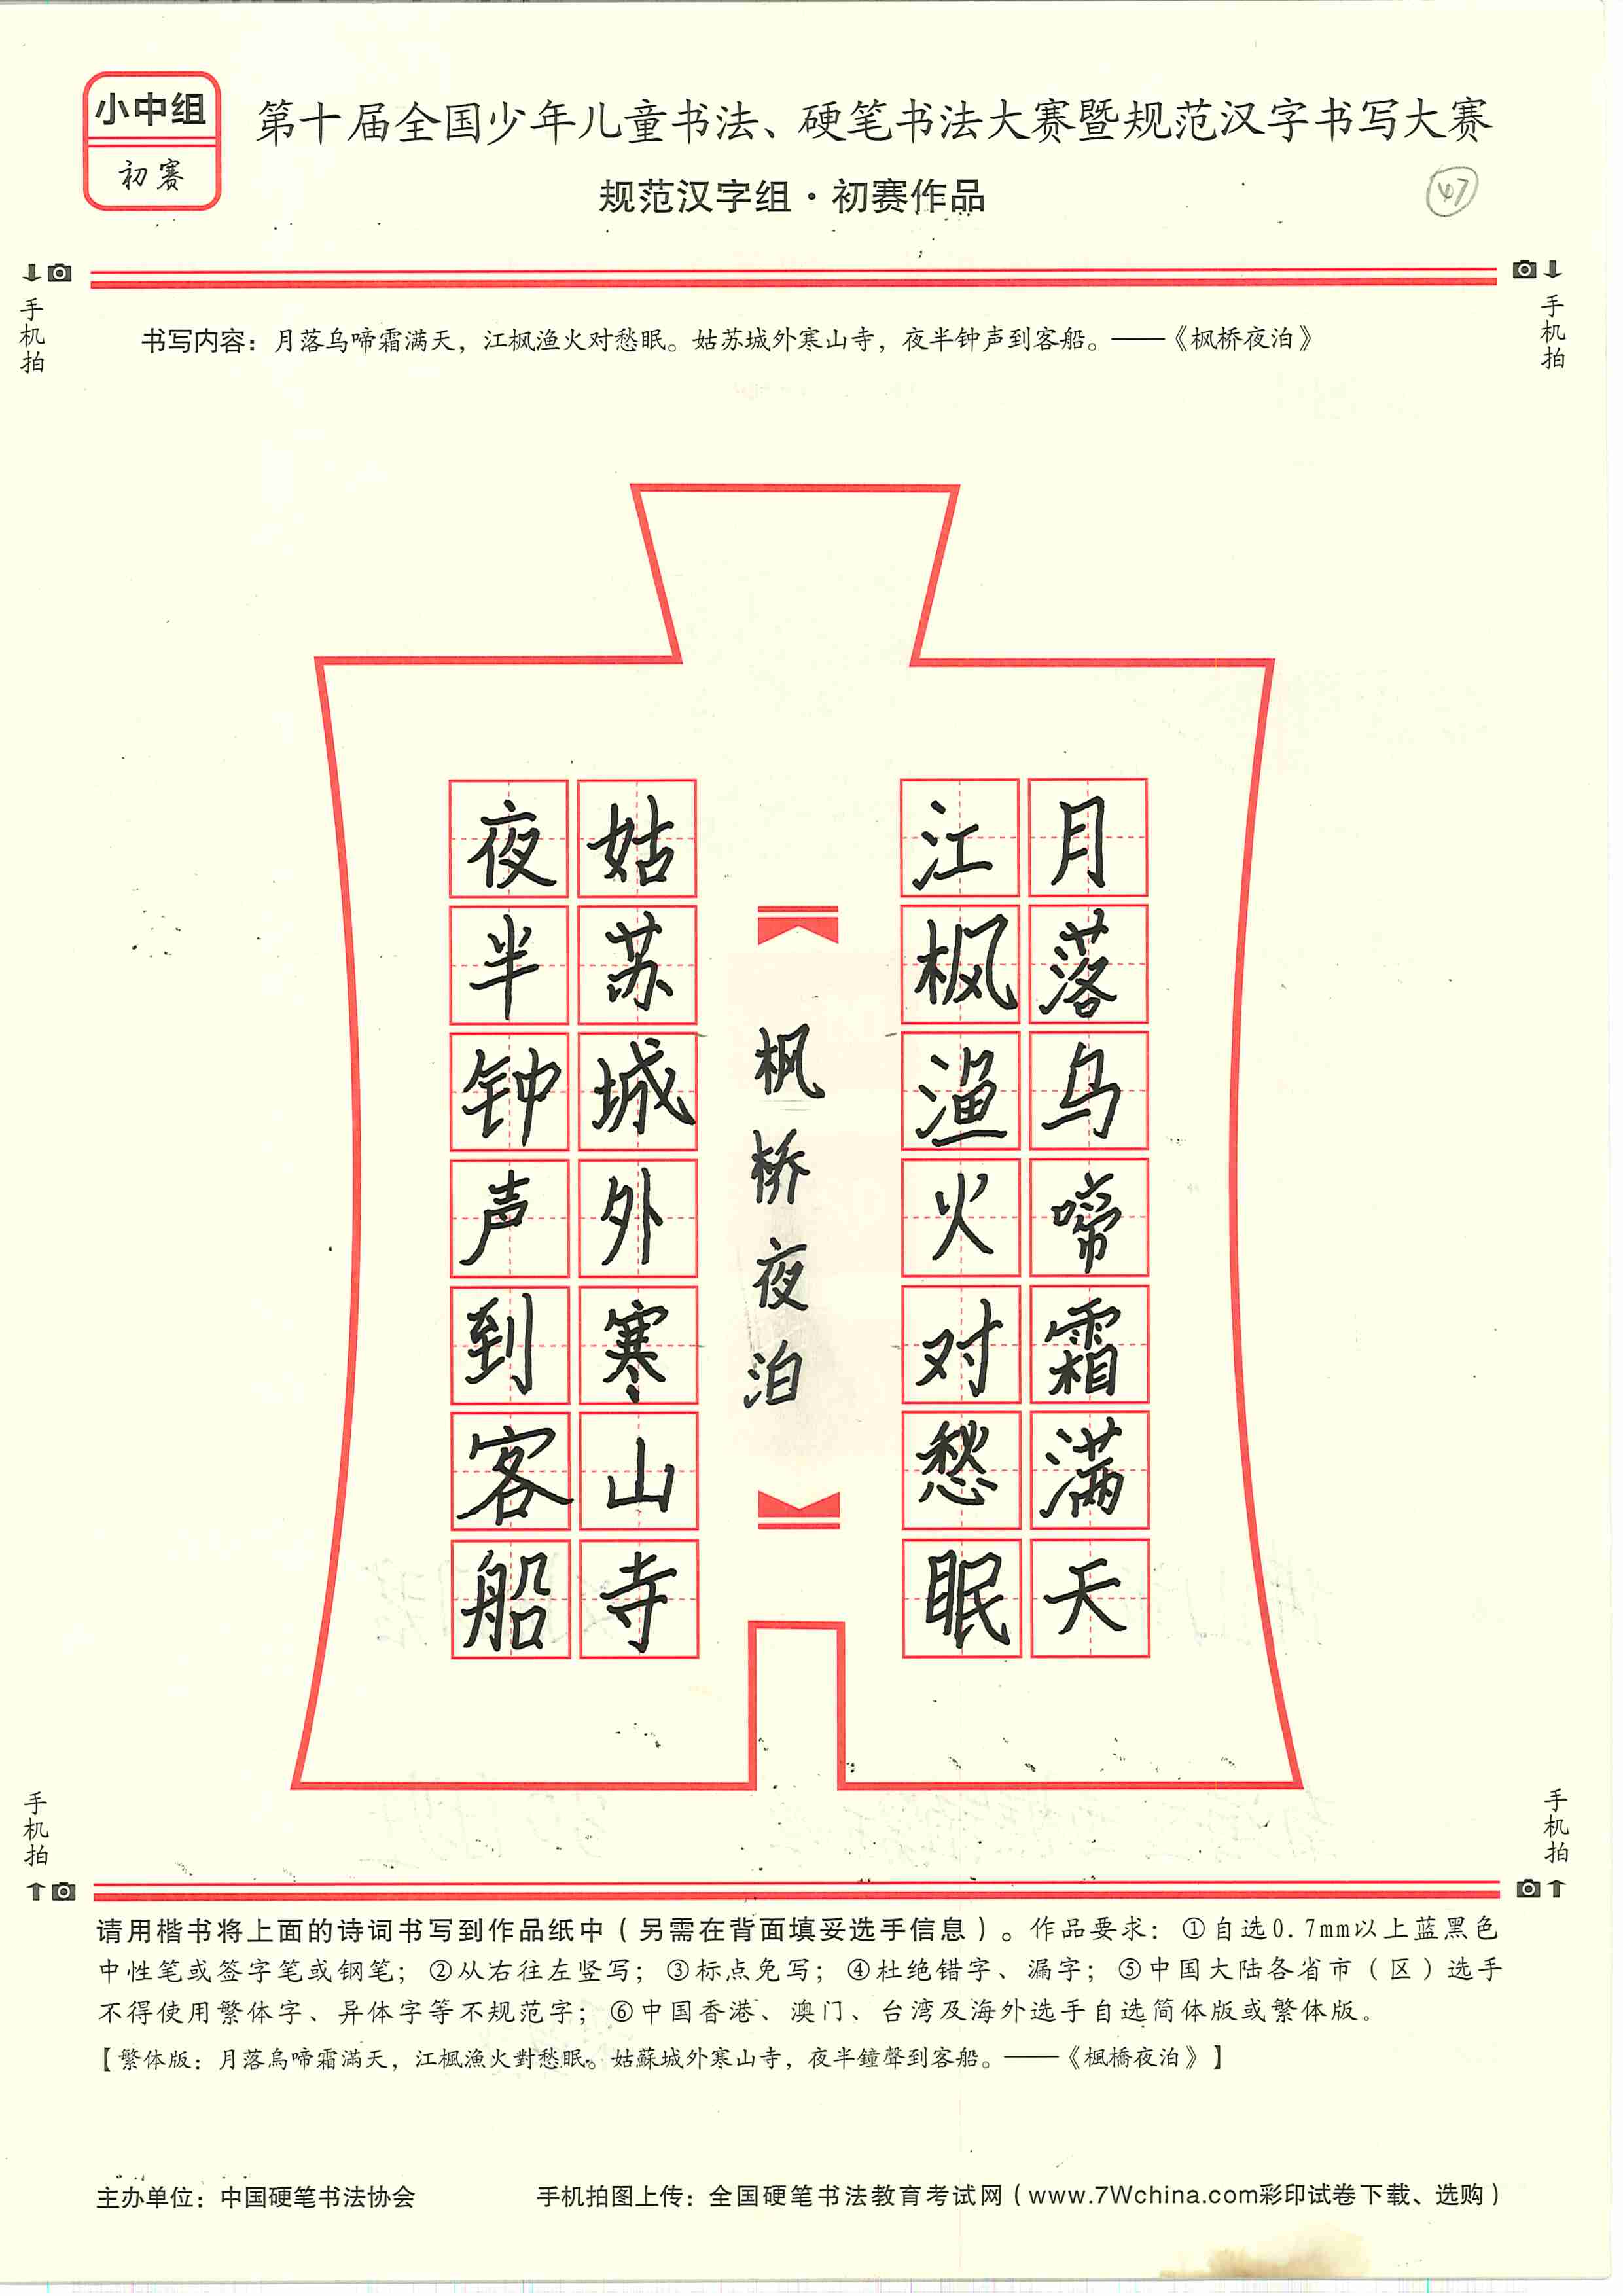 小中组
初赛
第十届全国少年儿童书法、硬笔书法大赛暨规范汉字书写大赛
规范汉字组·初赛作品
47
手机拍
手机拍
书写内容：月落乌啼霜满天，江枫渔火对愁眠。姑苏城外寒山寺，夜半钟声到客船。——《枫桥夜泊》
月落乌啼霜满天
江枫渔火对愁眠
枫桥夜泊
姑苏城外寒山寺
夜半钟声到客船
手机拍
手机拍
请用楷书将上面的诗词书写到作品纸中（另需在背面填妥选手信息）。作品要求：①自选0.7mm以上蓝黑色
中性笔或签字笔或钢笔；②从右往左竖写；③标点免写；④杜绝错字、漏字；⑤中国大陆各省市（区）选手
不得使用繁体字、异体字等不规范字；⑥中国香港、澳门、台湾及海外选手自选简体版或繁体版。
【繁体版：月落烏啼霜滿天，江楓漁火對愁眠。姑蘇城外寒山寺，夜半鐘聲到客船。——《楓橋夜泊》】
主办单位：中国硬笔书法协会
手机拍图上传：全国硬笔书法教育考试网（www.7Wchina.com彩印试卷下载、选购）